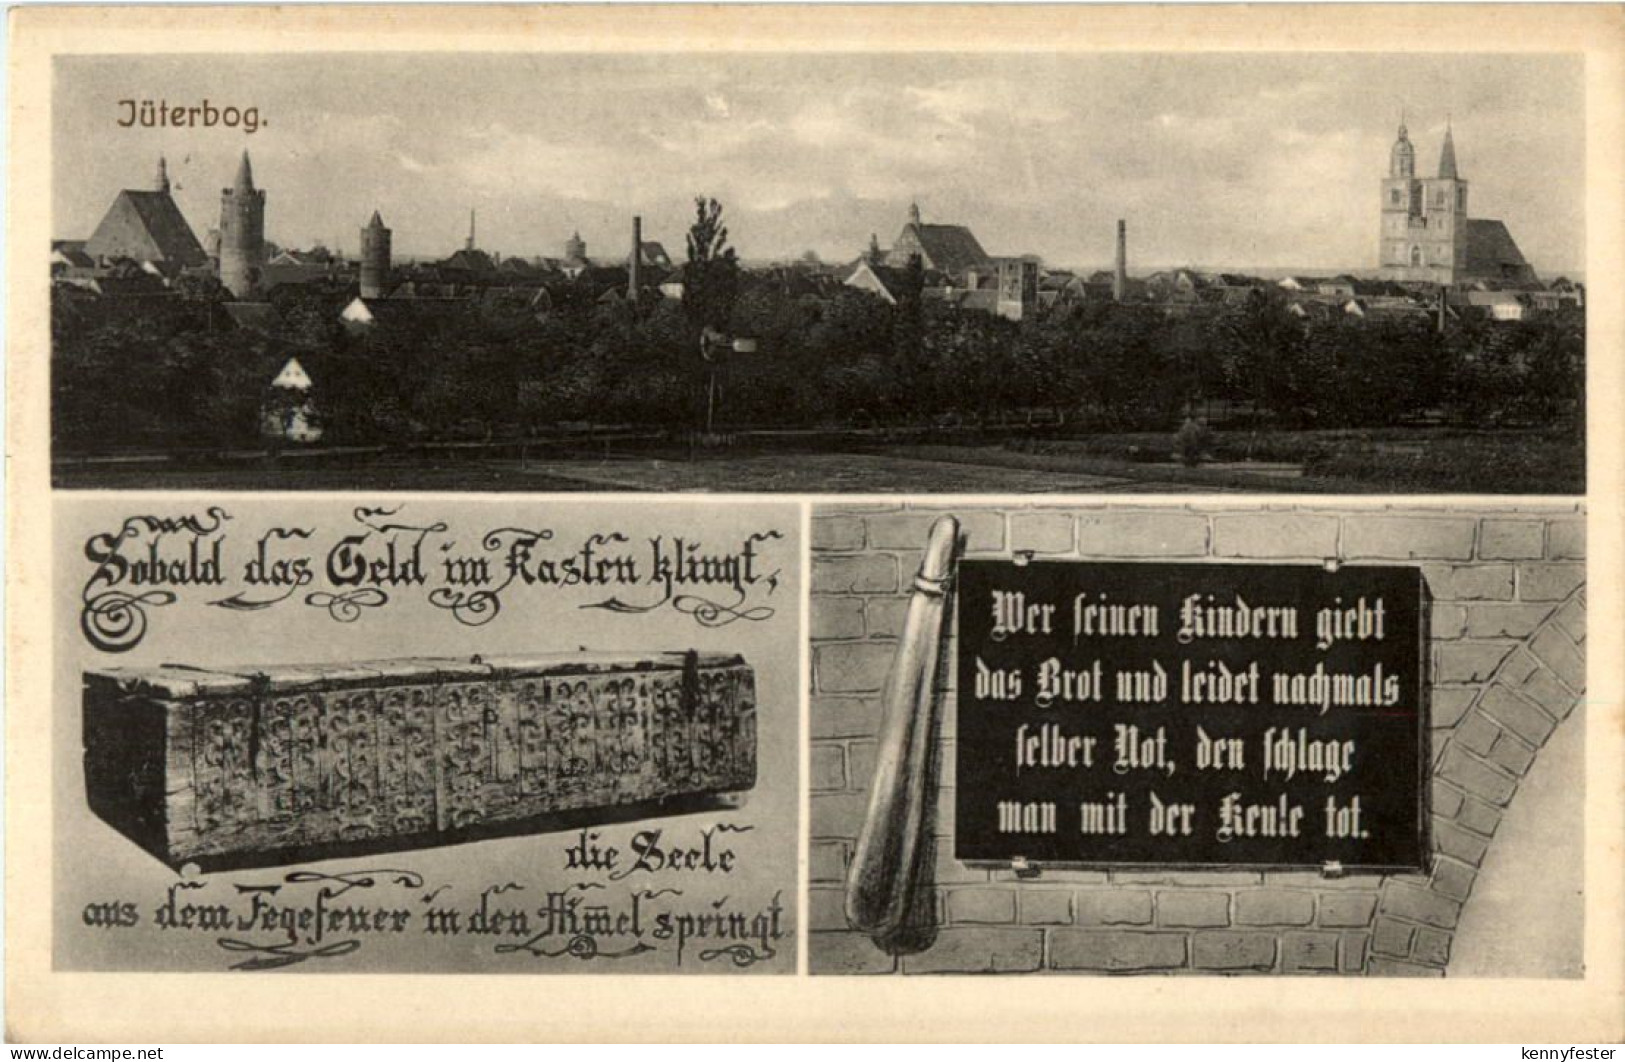 Jüterbog.
Sobald das Geld im Kasten klingt,
die Seele
aus dem Fegefeuer in den Him̅el springt
Wer seinen Kindern giebt
das Brot und leidet nachmals
selber Not, den schlage
man mit der Keule tot.
www.delcampe.net
kennyfester